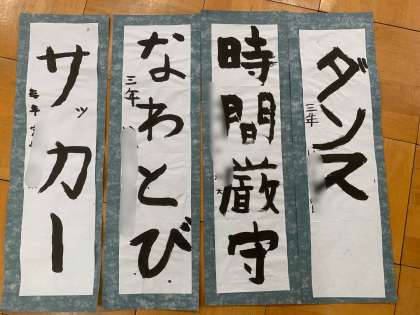 ダンス
三年
時間厳守
なわとび
三年
サッカー